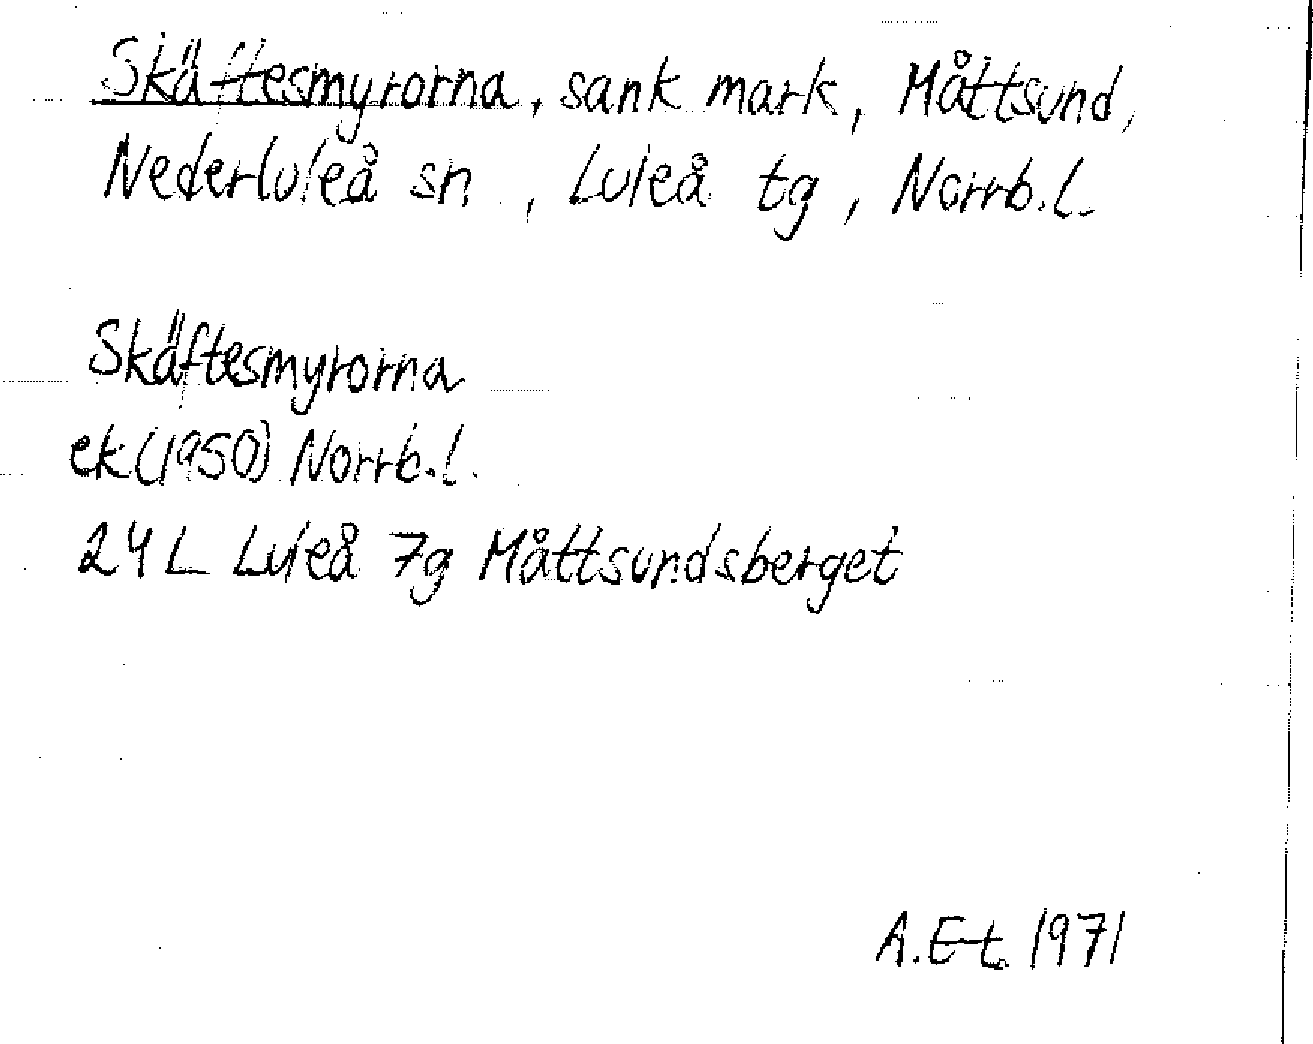 Skäftesmyrorna, sank mark, Måttsund,
Nederluleå sn, Luleå tg, Norrb.l.
Skäftesmyrorna
ek(1950) Norrb.l.
24 L Luleå 7g Måttsundsberget
A.E-t. 1971